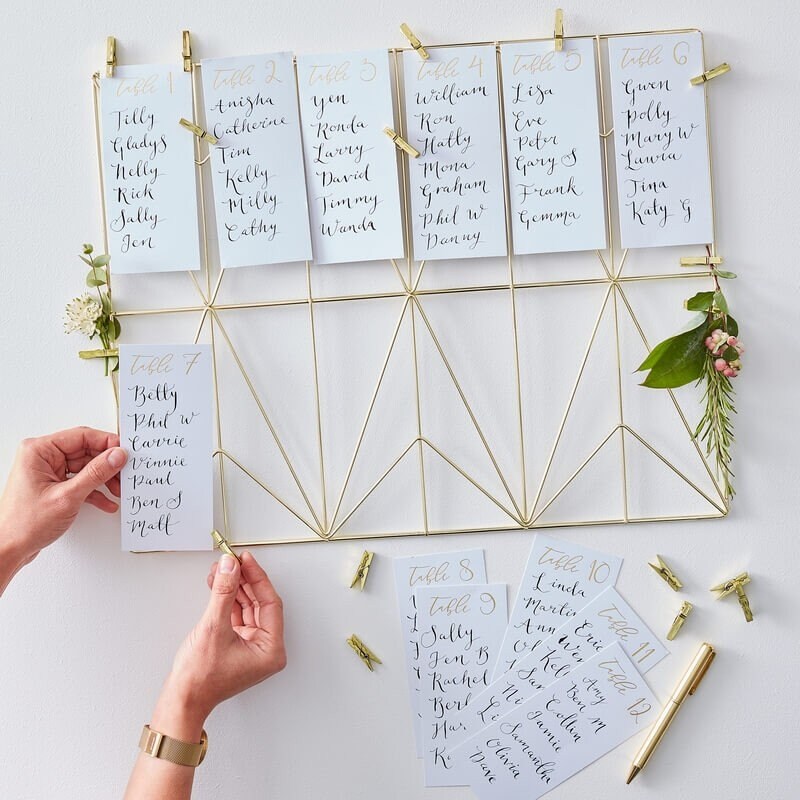 Table 1
Tilly
Gladys
Nelly
Rick
Sally
Jen
Table 2
Anisha
Catherine
Tim
Kelly
Milly
Cathy
Table 3
Yen
Ronda
Larry
David
Timmy
Wanda
Table 4
William
Ron
Hatty
Mona
Graham
Phil W
Danny
Table 5
Lisa
Eve
Peter
Gary S
Frank
Gemma
Table 6
Gwen
Polly
Mary W
Laura
Tina
Katy G
Table 7
Betty
Phil W
Carrie
Vinnie
Paul
Ben S
Matt
Table 8
Table 9
Sally
Jen B
Rachel
Table 10
Linda
Martin
Ann
Table 11
Eric
Table 12
Amy
Ben M
Collin
Jamie
Samantha
Olivia
Dave